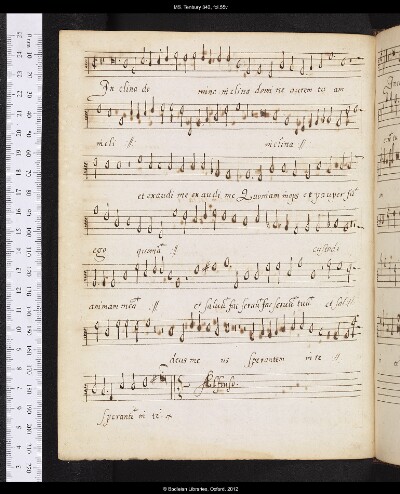 MS. Tenbury 340, fol.55v
In clina do mine inclina domi ne aurem tu am
incli // inclina //
et exaudi me exaudi me Quoniam inops et pauper su͂
ego quonia͂ // custodi
animam mea͂ // et saluu͂ fac seruu͂ fac seruu͂ tuu͂ et sal //
deus me us sperantem in te //
sperante͂ in te
© Bodleian Libraries, Oxford, 2012